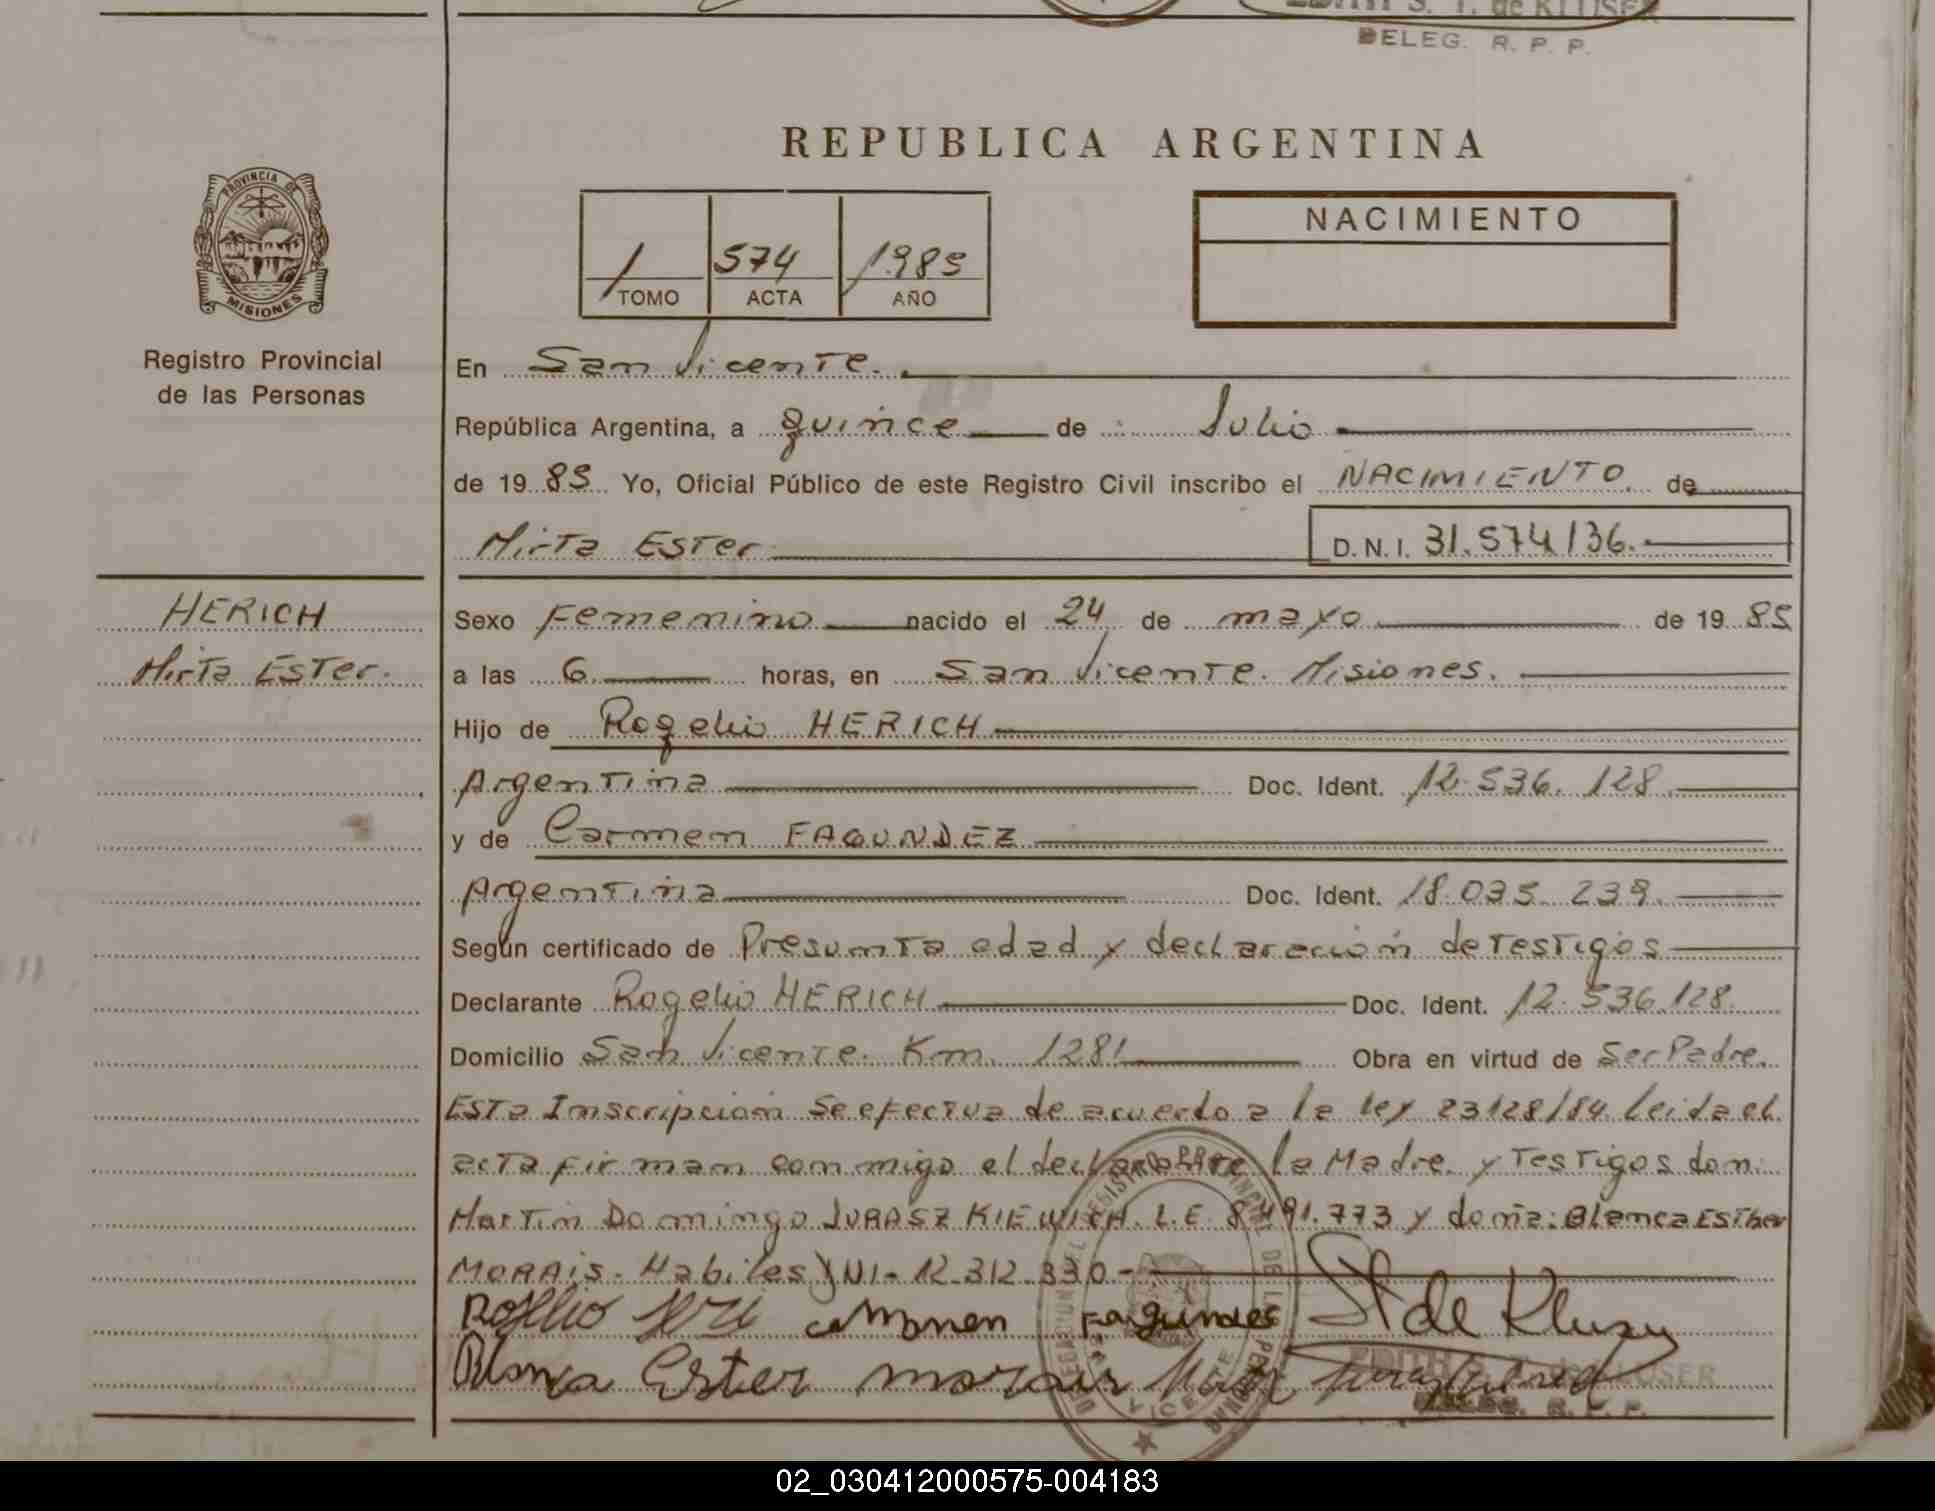 EDITH S. T. de KLUSER
DELEG. R. P. P.
REPUBLICA ARGENTINA
PROVINCIA DE
MISIONES
Registro Provincial
de las Personas
1 574 1985
TOMO ACTA AÑO
NACIMIENTO
En San Vicente.
República Argentina, a quince de Julio
de 1985 Yo, Oficial Público de este Registro Civil inscribo el NACIMIENTO. de
Mirta Ester
D.N.I. 31.574136.
HERICH
Mirta Ester.
Sexo Femenino nacido el 24 de mayo de 1985
a las 6 horas, en San Vicente. Misiones.
Hijo de Rogelio HERICH
Argentina Doc. Ident. 12.536.128
y de Carmen FAGUNDEZ
Argentina Doc. Ident. 18.035.239.
Según certificado de Presunta edad y declaración de Testigos
Declarante Rogelio HERICH Doc. Ident. 12.536.128.
Domicilio San Vicente. Km. 1281 Obra en virtud de Ser Padre.
Esta Inscripción Se efectua de acuerdo a la ley 23128/84. leida el
acta firman conmigo el declarante la Madre y Testigos don:
Martin Domingo JURASZ KIEWICH. L.E. 8.491.773 y doña: Blanca Esther
MORAIS. Habiles DNI. 12.312.330-
Rogelio carmen Fagundes St de Kluser
Blanca Ester morais
EDITH S. T. de KLUSER
DELEG. R. P. P.
02_030412000575-004183